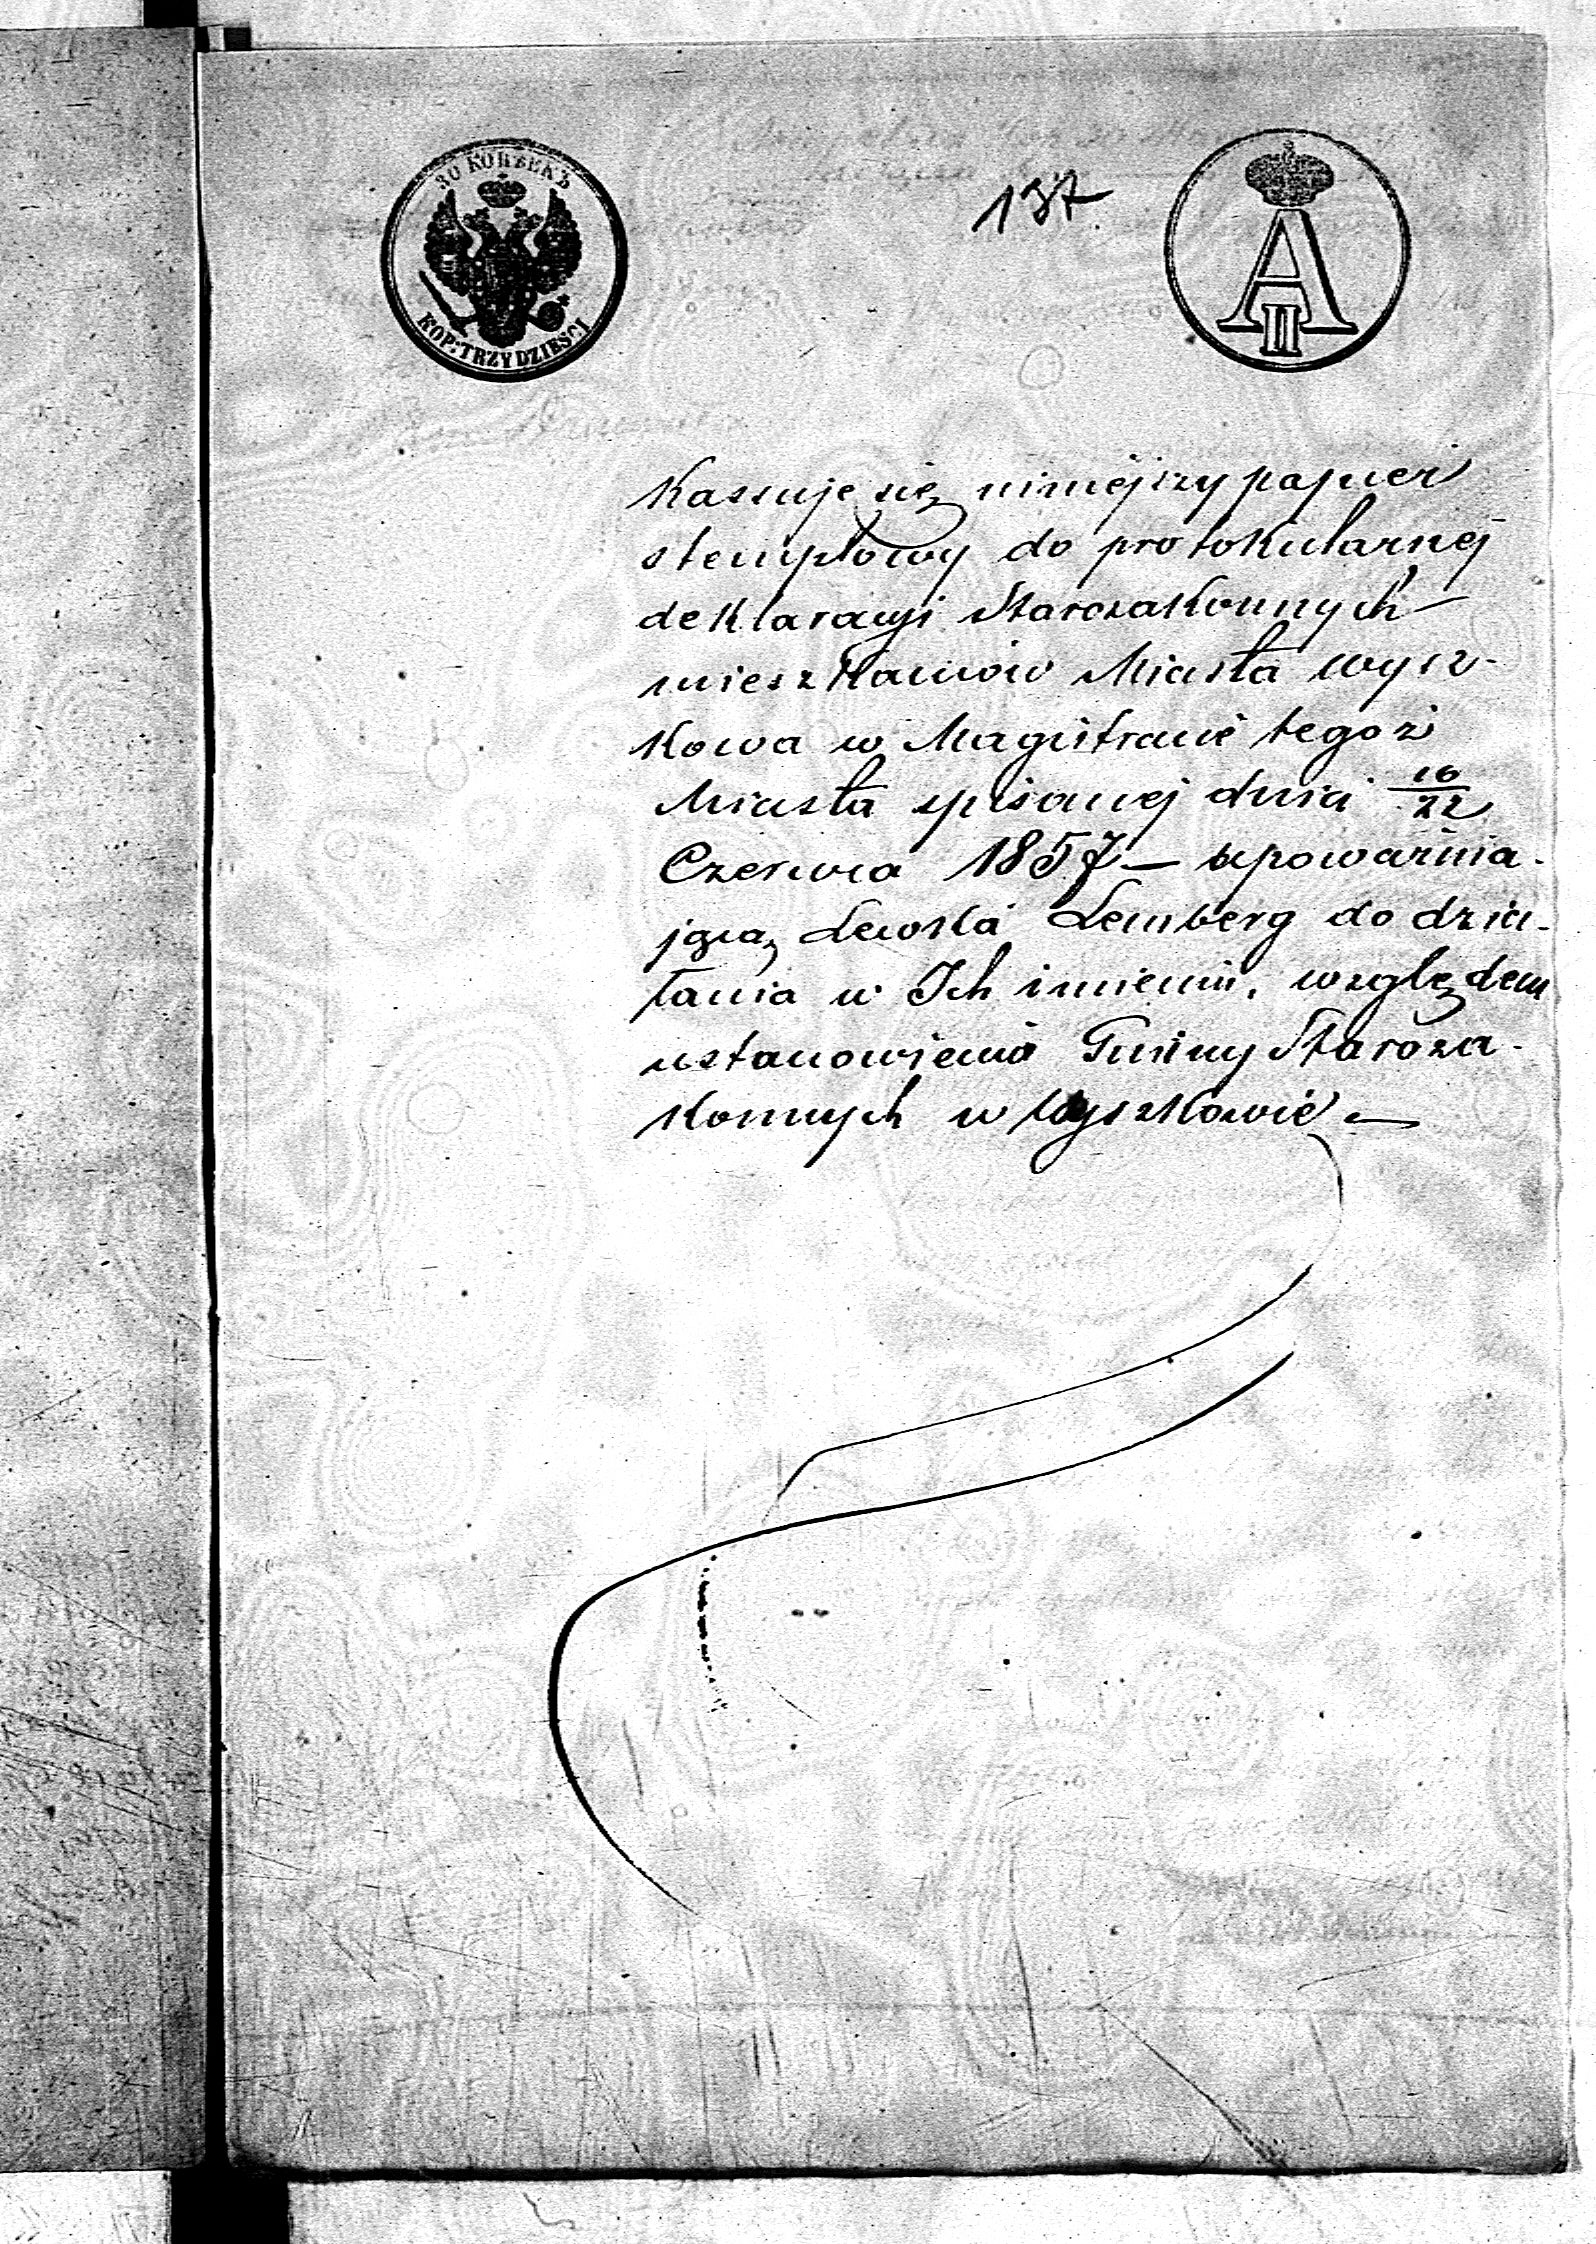 30 КОПѢЕКЪ
KOP: TRZYDZIEŚCI
137
A
II
Kassuje się niniéjszy papier
stemplowy do protokularnéj
deklaracyi Starozakonnych
mieszkańców Miasta Wysz-
kowa w Magistracie tegoż
Miasta spisanej dnia 10/22
Czerwca 1857 — upoważnia-
jącą Lewka Lemberg do dzia-
łania w Ich imieniu, względem
ustanowienia Gminy Staroza-
konnych w Wyszkowie —